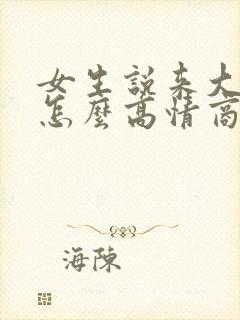 女生說来大
怎麼高情商
海陳